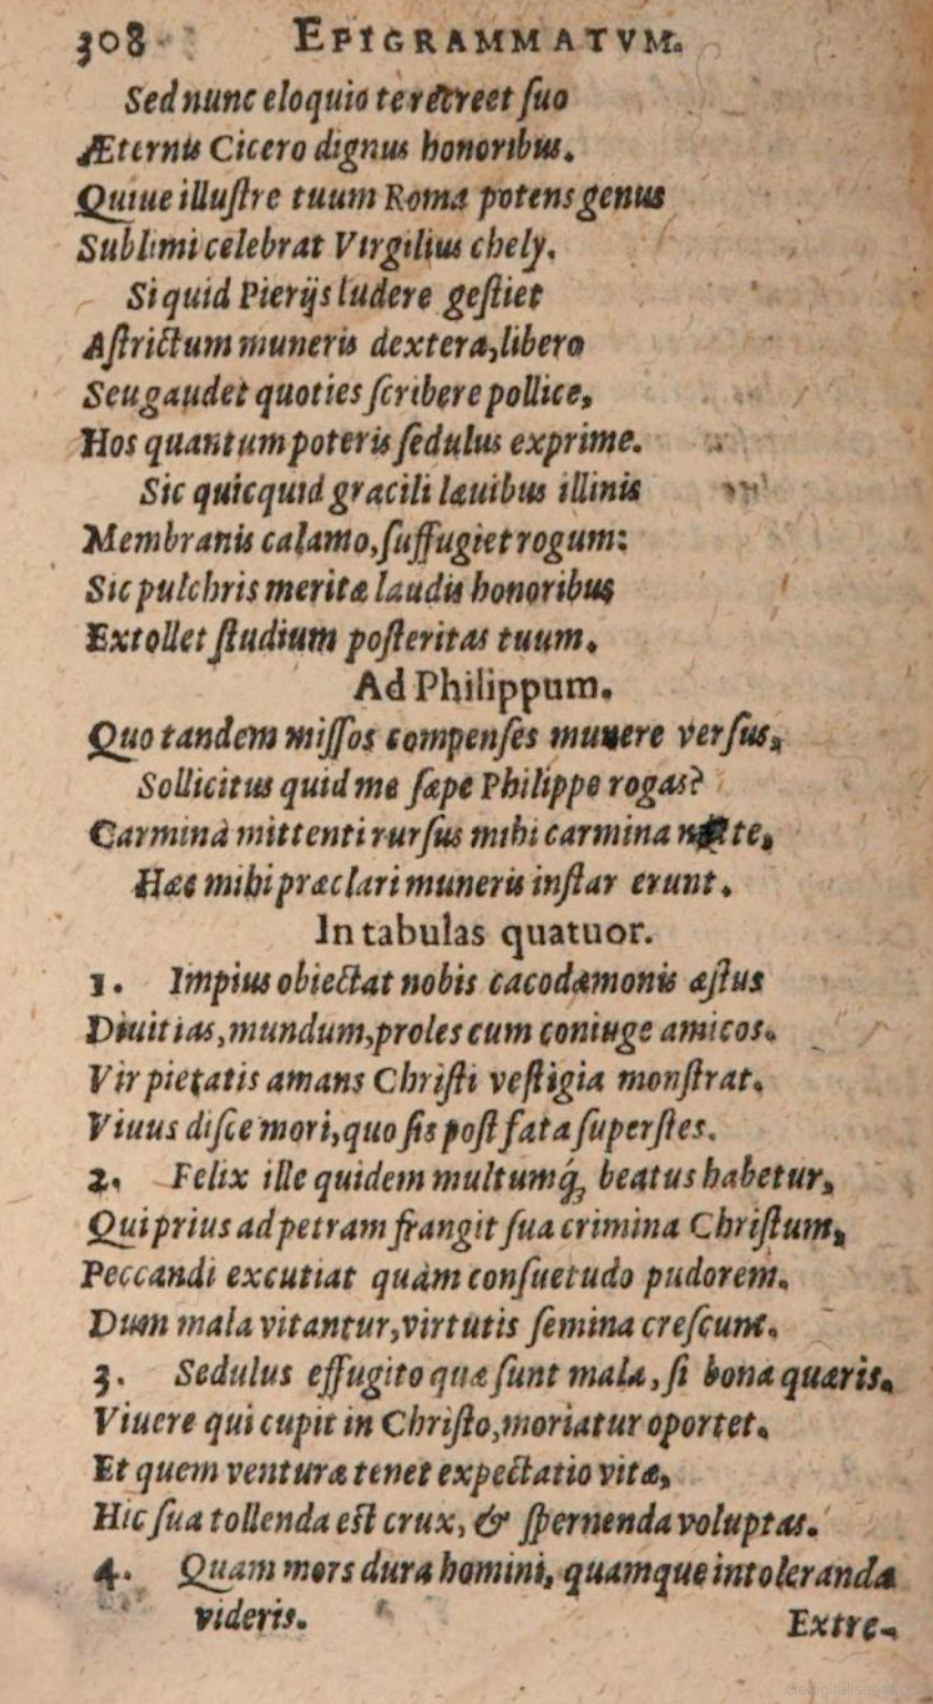 308 EPIGRAMMATVM.
Sed nunc eloquio te recreet ſuo
Æternis Cicero dignus honoribus.
Quiue illuſtre tuum Roma potens genus
Sublimi celebrat Virgilius chely.
Si quid Pierijs ludere geſtiet
Aſtrictum muneris dextera, libero
Seu gaudet quoties ſcribere pollice,
Hos quantum poteris ſedulus exprime.
Sic quicquid gracili læuibus illinis
Membranis calamo, ſuffugiet rogum:
Sic pulchris meritæ laudis honoribus
Extollet ſtudium poſteritas tuum.
Ad Philippum.
Quo tandem miſſos compenſes munere verſus,
Sollicitus quid me ſæpe Philippe rogas?
Carmina mittenti rurſus mihi carmina te,
Hæc mihi præclari muneris inſtar erunt.
In tabulas quatuor.
1. Impius obiectat nobis cacodæmonis æſtus
Diuitias, mundum, proles cum coniuge amicos.
Vir pietatis amans Chriſti veſtigia monſtrat.
Viuus diſce mori, quo ſis poſt fata ſuperſtes.
2. Felix ille quidem multumq́; beatus habetur,
Qui prius ad petram frangit ſua crimina Chriſtum,
Peccandi excutiat quàm conſuetudo pudorem.
Dum mala vitantur, virtutis ſemina creſcunt.
3. Sedulus effugito quæ ſunt mala, ſi bona quæris.
Viuere qui cupit in Chriſto, moriatur oportet.
Et quem venturæ tenet expectatio vitæ,
Hic ſua tollenda eſt crux, & ſpernenda voluptas.
4. Quam mors dura homini, quamque intoleranda
videris.
Extre-